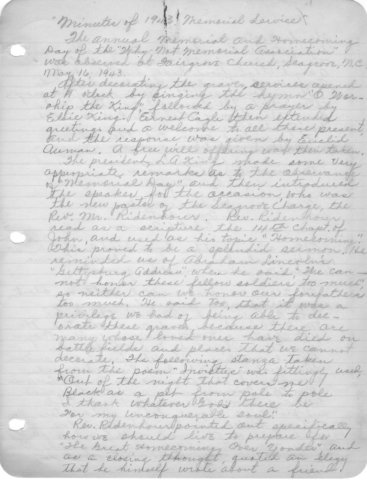 "Minutes of 1943 Memorial Service"
The annual Memorial and Homecoming
Day of the "Why Not Memorial Association"
was observed at Fairgrove Church, Seagrove, N.C.
May 16, 1943.
After decorating the graves services opened
at 11 o'clock by singing the hymn "O Wor-
ship the King" followed by a prayer by
Elsie King. Earnest Cagle then extended
greetings and a welcome to all those present,
and the response was given by Euclid
Auman. A free will offering was then taken.
The president, made some very
appropriate remarks as to the observance
of "Memorial Day" and then introduced
the speaker for the occasion, who was
the new pastor of the Seagrove Charge, the
Rev. Mr. Ridenhour. Rev. Ridenhour
read as a scripture the 14th Chapt. of
John, and used as his topic "Homecoming"
which proved to be a splendid sermon. He
reminded us of Abraham Lincoln's
"Gettysburg Address" when he said "We can-
not honor these fellow soldiers too much,
so neither can we honor our forefathers
too much. He said too, that it was a
privilege we had of being able to dec-
orate these graves, because there are
many whose loved ones have died on
battle fields and places that we cannot
decorate. The following stanza taken
from the poem "Invictus" was fittingly used,
"Out of the night that covers me
Black as a pit from pole to pole
I thank whatever Gods there be
For my unconquerable soul."
Rev. Ridenhour pointed out specifically
how we should live to prepare for
"The Great Homecoming Over Yonder" and
as a closing thought, quoted an elegy
that he himself wrote about a friend.